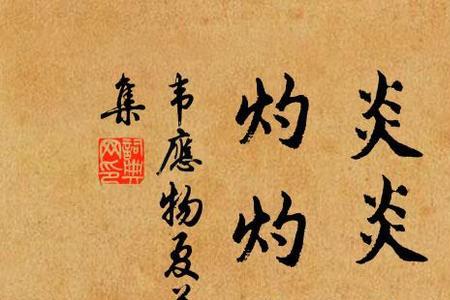 炎炎
灼灼
韦應物夏
集
詞典網印